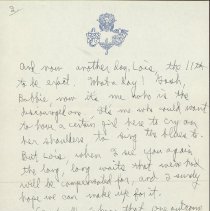 3
And now another day, Lois, the 11th
to be exact. What a day! Gosh,
Bobbie, now it's me who is the
discouraged one. It's me who could want
to have a certain girl here to cry on
her shoulders, to sing the blues to.
But Lois, when I see you again
the long, long waits that we've had
will be compensated for, and I surely
hope we can make up for it.
that one outcome